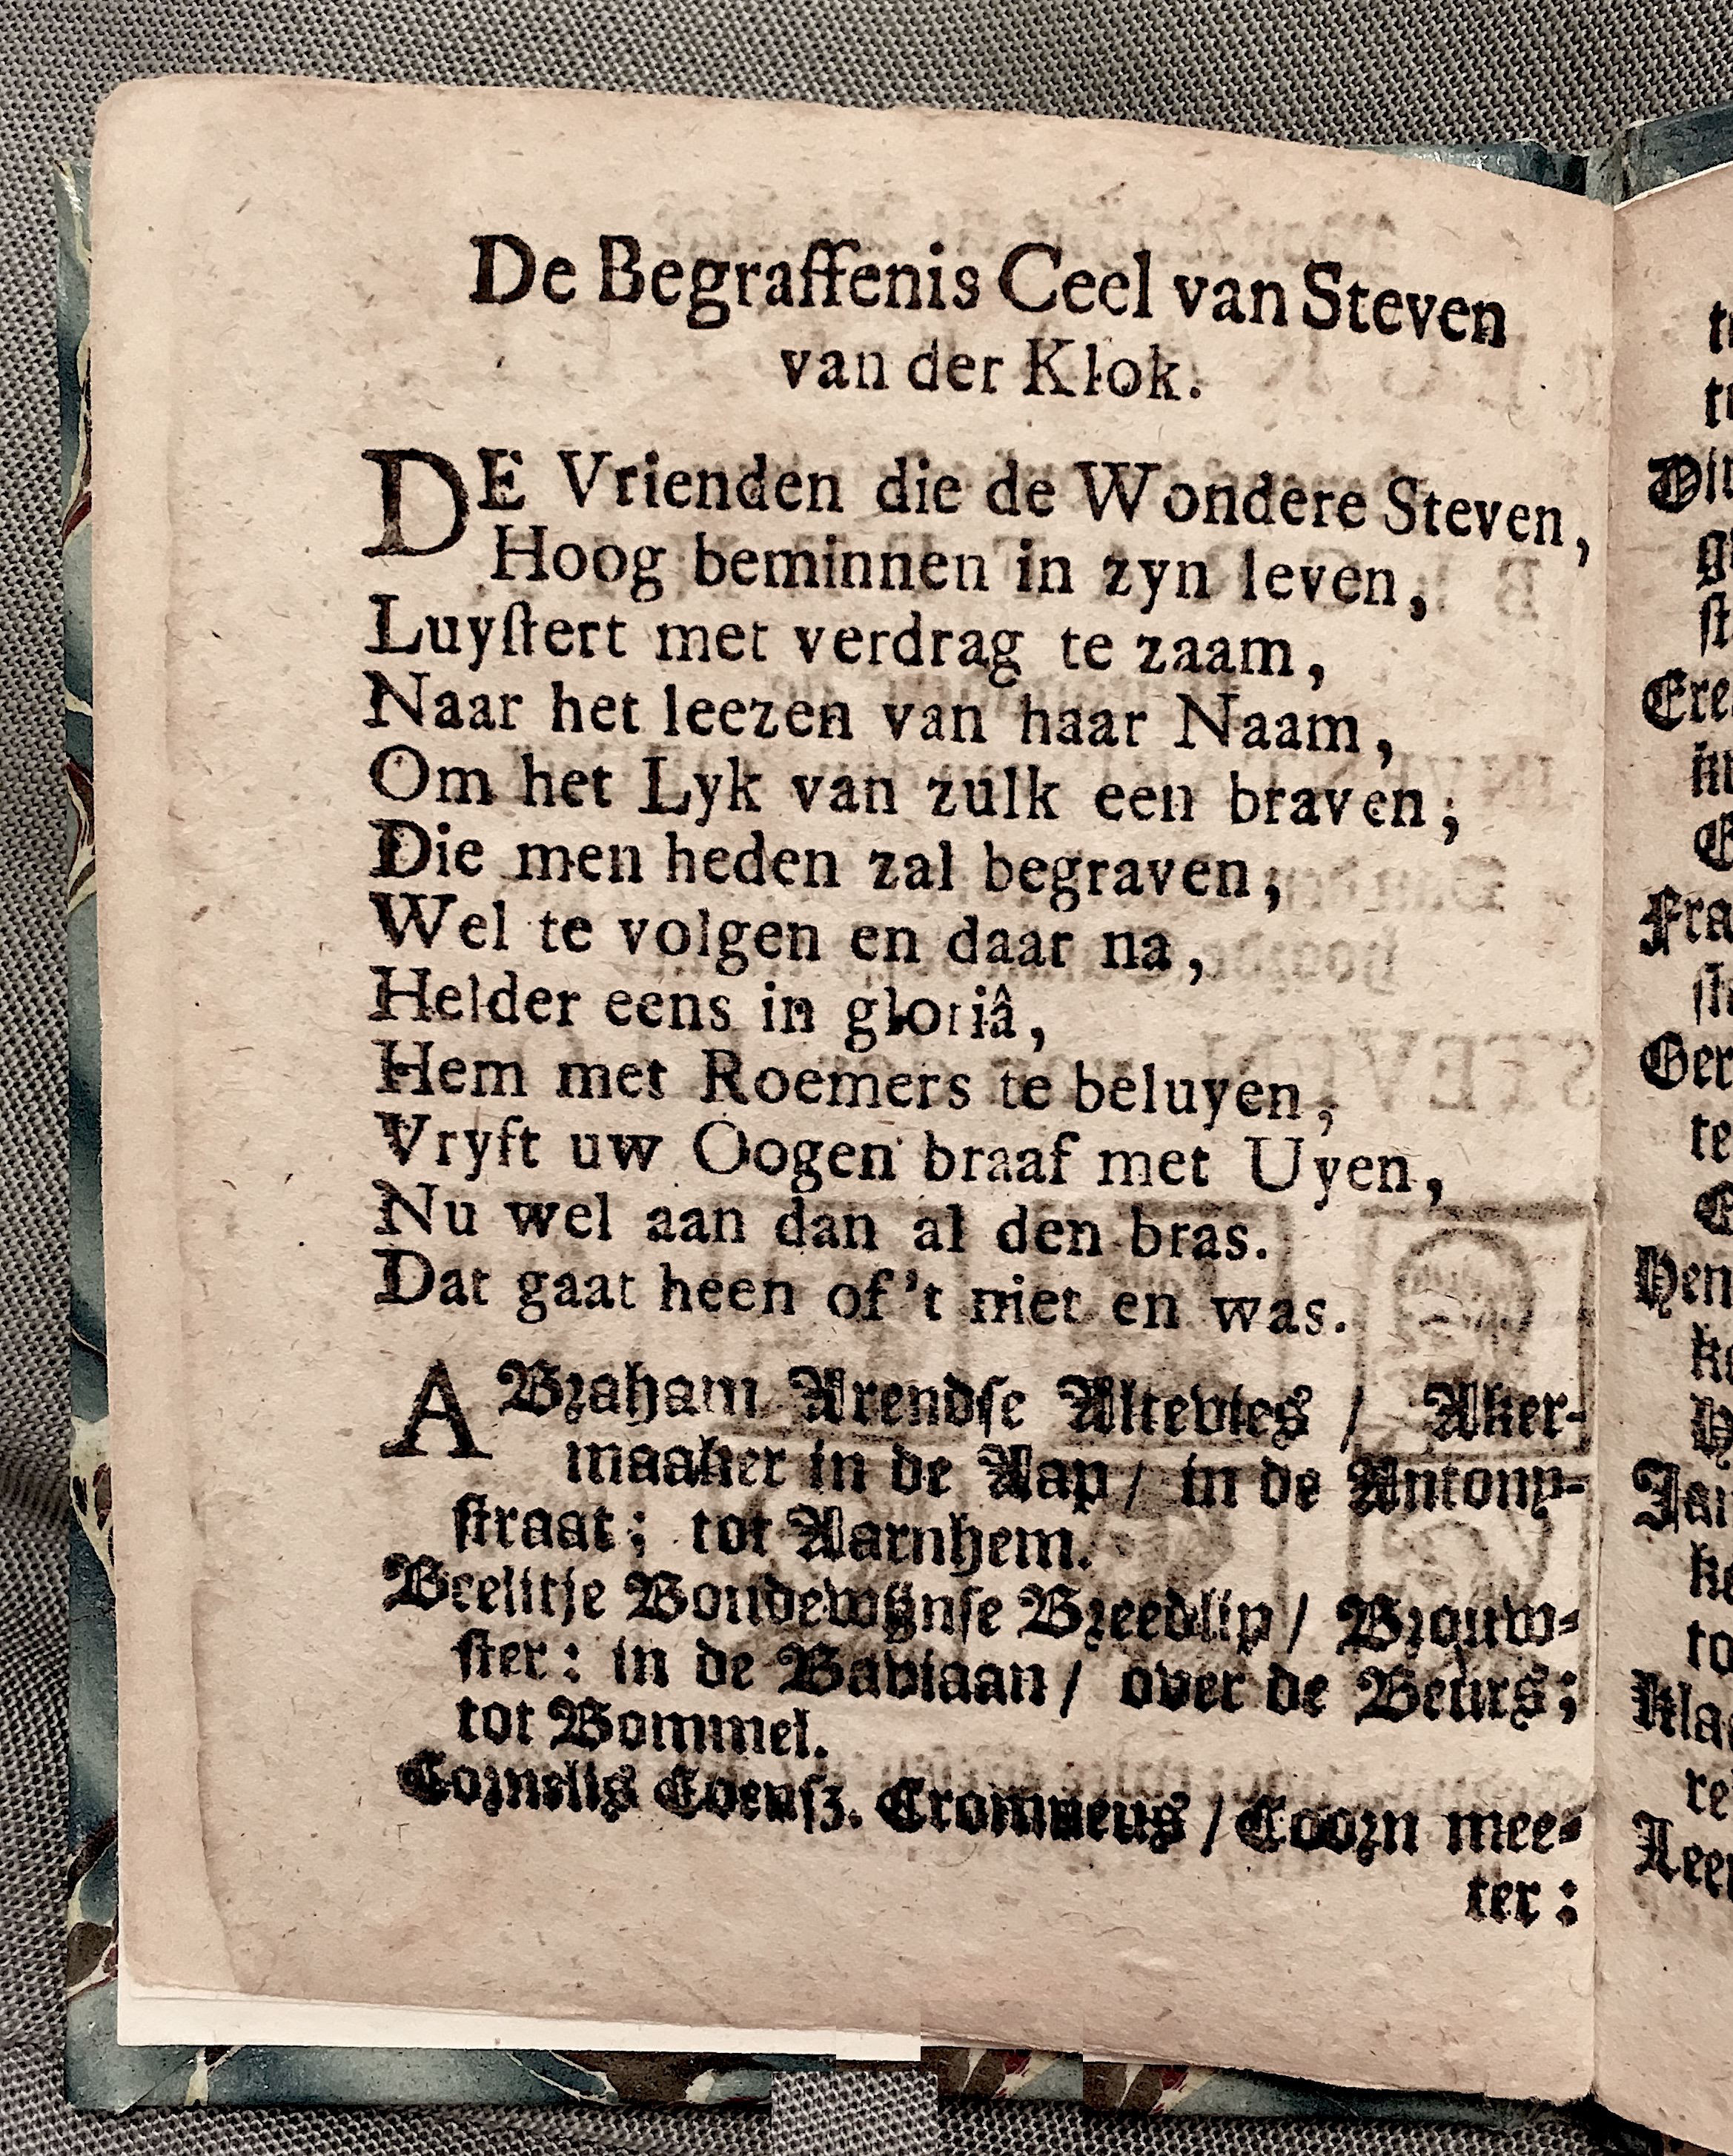 De Begraffenis Ceel van Steven
van der Klok.
DE Vrienden die de Wondere Steven,
Hoog beminnen in zyn leven,
Luyſtert met verdrag te zaam,
Naar het leezen van haar Naam,
Om het Lyk van zulk een braven;
Die men heden zal begraven,
Wel te volgen en daar na,
Helder eens in gloriâ,
Hem met Roemers te beluyen,
Vryft uw Oogen braaf met Uyen,
Nu wel aan dan al den bras.
Dat gaat heen of't niet en was.
ABraham Arendſe Altevies / Aker-
maaker in de Aap / in de Antony-
ſtraat; tot Aarnhem.
Beelitje Boudewijnſe Breedlip / Brouw-
ſter: in de Baviaan / over de Beurs;
tot Bommel.
Cornelis Coenſz. / Coorn mee-
ter: